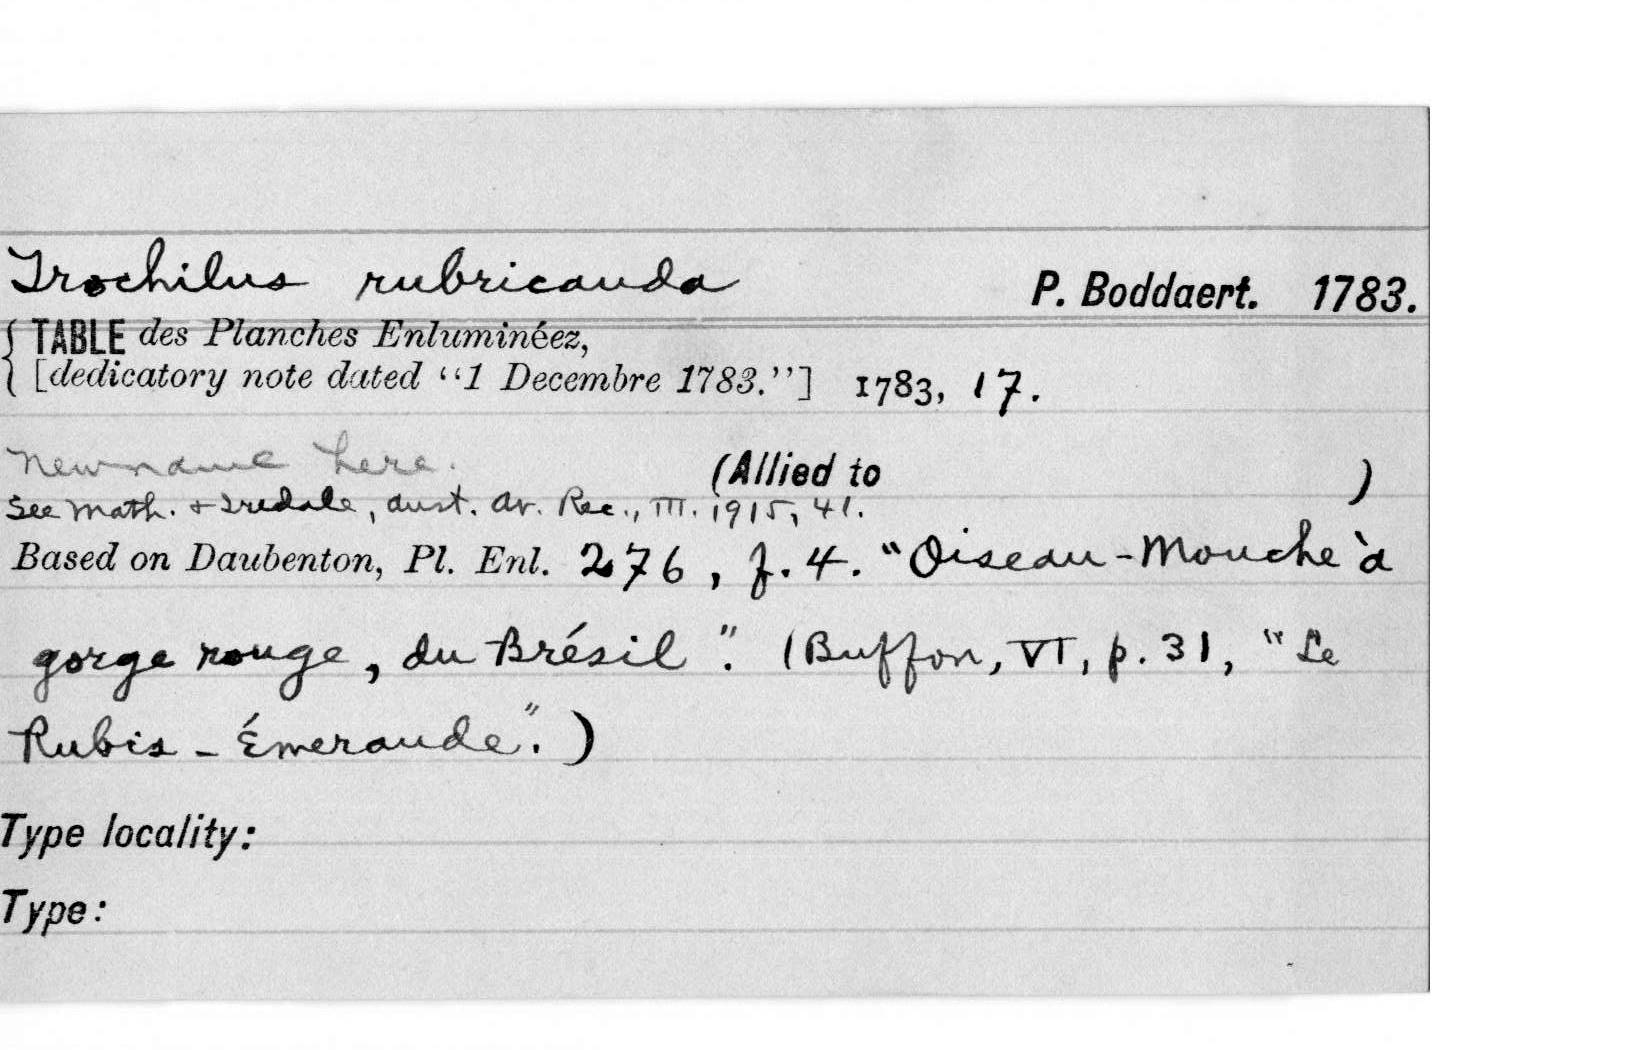 Trochilus rubricauda P. Boddaert. 1783.
{ TABLE des Planches Enluminéez,
[dedicatory note dated “1 Decembre 1783.”] 1783, 17.
New name here. (Allied to )
See Math. & Iredale, Aust. Av. Rec., III. 1915, 41.
Based on Daubenton, Pl. Enl. 276, f. 4. “Oiseau-Mouche à
gorge rouge, du Brésil”. (Buffon, VI, p. 31, “Le
Rubis-Émeraude”.)
Type locality:
Type: